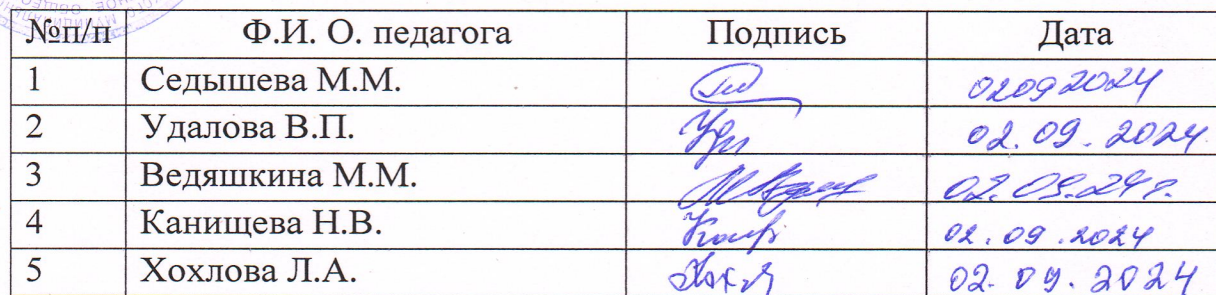 №п/п Ф.И. О. педагога Подпись Дата
1 Седышева М.М. 02092024
2 Удалова В.П. 02.09.2024
3 Ведяшкина М.М. 02.09.24 г.
4 Канищева Н.В. 02.09.2024
5 Хохлова Л.А. 02.09.2024